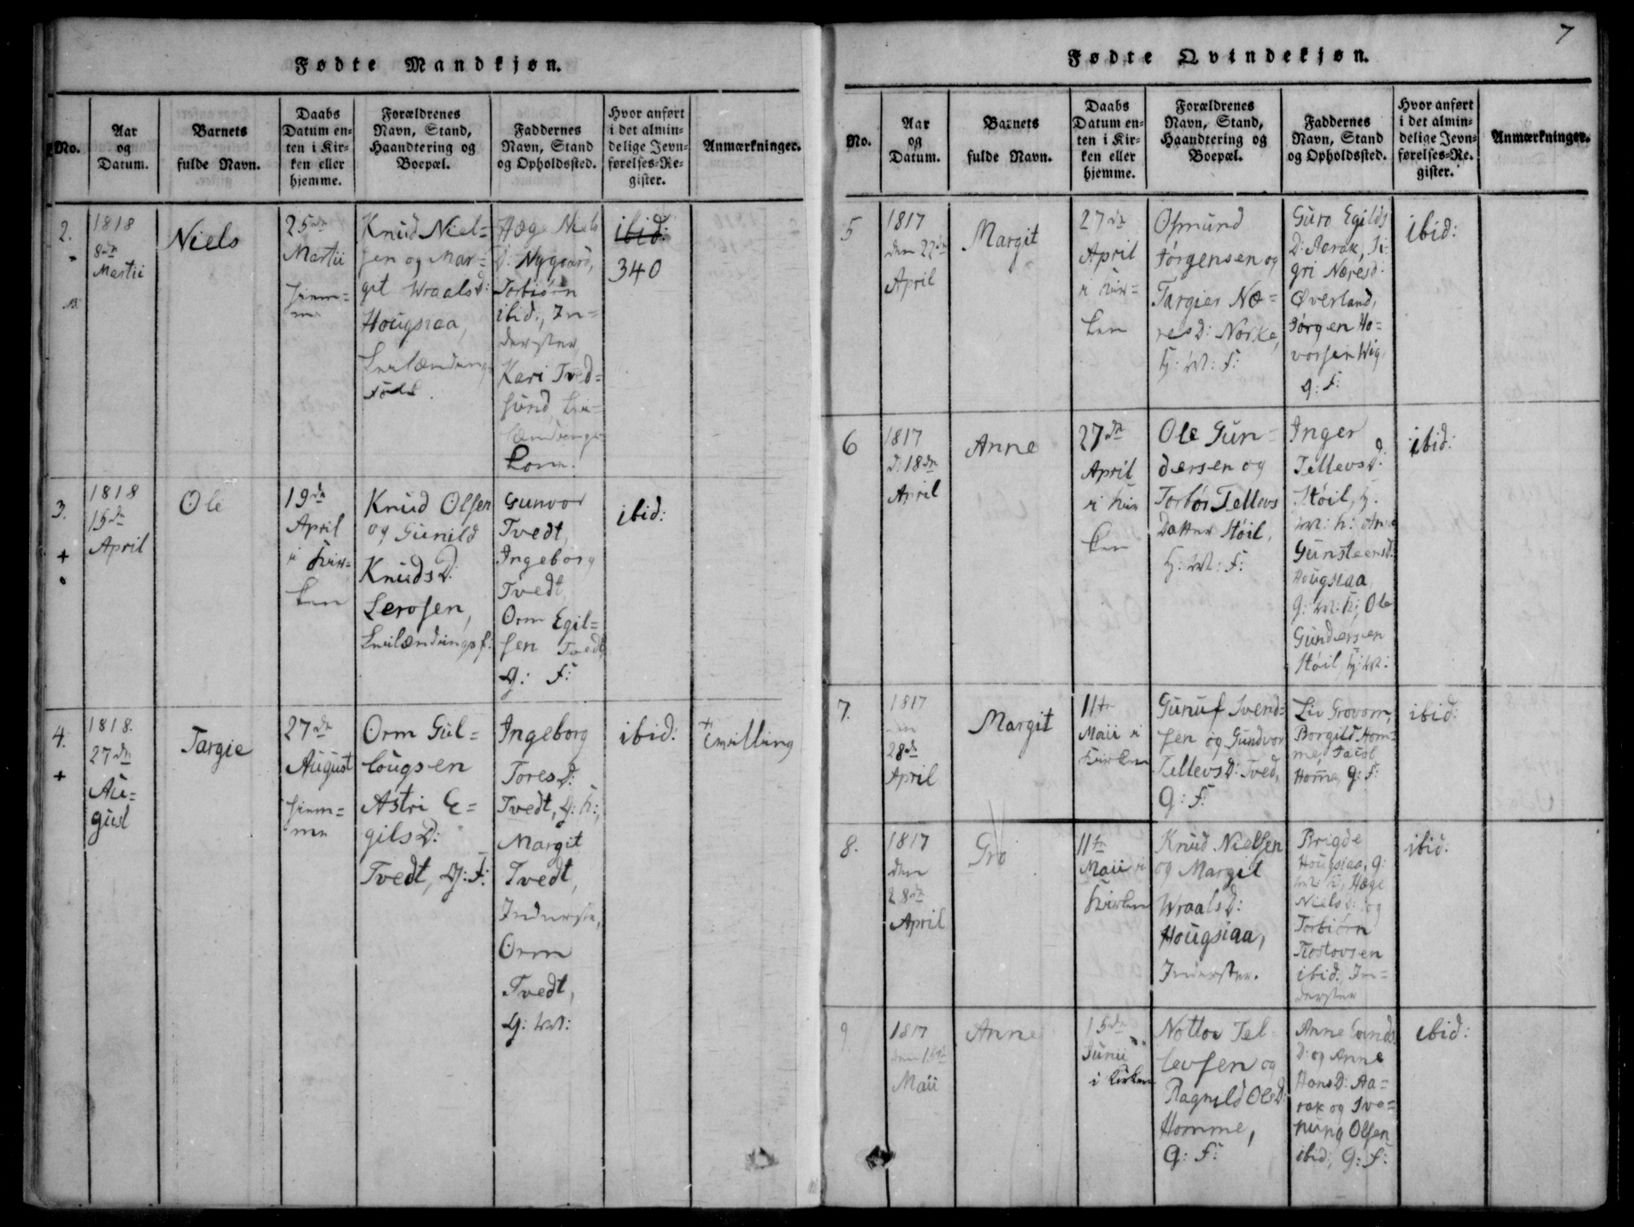 7
Fødte Mandkjøn.
No.
Aar
og
Datum.
Barnets
fulde Navn.
Daabs
Datum en-
ten i Kir-
ken eller
hjemme.
Forældrenes
Navn, Stand,
Haandtering og
Boepæl.
Faddernes
Navn, Stand
og Opholdssted.
Hvor anført
i det almin-
delige Jevn-
førelses-Re-
gister.
Anmærkninger.
2.
1818
8de
Martii
Niels
25de
Martii
hiem-
me
Knud Niel-
sen og Mar-
git WraalsD:
Hougsiaa,
Hæge Niels
D: Nygaard,
Torbiørn
ibid:, In-
derster,
Kari Tved-
sund
Kone.
ibid:
340
3.
+
1818
15de
April
Ole
19de
April
i Kir-
ken
Knud Olsen
og Gunild
KnudsD:
Lerosen,
Gunvor
Tvedt,
Ingeborg
Tvedt,
Orm Egil-
sen Tvedt
G: F:
ibid:
4.
+
1818.
27de
Au-
gust
Targie
27de
August
hiem-
me
Orm Gul-
lougsen
Astri E-
gilsD:
Tvedt, G: F:
Ingeborg
ToresD:
Tvedt, G: K:,
Margit
Tvedt,
Inderste,
Orm
Tvedt,
G: M:
ibid:
Fødte Qvindekjøn.
No.
Aar
og
Datum.
Barnets
fulde Navn.
Daabs
Datum en-
ten i Kir-
ken eller
hjemme.
Forældrenes
Navn, Stand,
Haandtering og
Boepæl.
Faddernes
Navn, Stand
og Opholdssted.
Hvor anført
i det almin-
delige Jevn-
førelses-Re-
gister.
Anmærkninger.
5
1817
den 22de
April
Margit
27de
April
i Kir-
ken
Osmund
Jørgensen og
Targier Næ-
resD: Norke,
H: M: F:
Guro Egilds
D: Aarak, Si-
gri NæresD:
Øverland,
Jørgen Ho-
vorsen Wig,
G: F:
ibid:
6
1817
D: 18de
April
Anne
27de
April
i Kir
ken
Ole Gun-
dersen og
Torbør Tellevs
Datter Støil,
H: M: F:
Inger
TellevsD:
Støil, H:
M: K:
GunsteensD:
Hougsiaa
G: M: K; Ole
Gundersen
Støil, H: M:
ibid:
7.
1817
den
28de
April
Margit
11te
Maii i
Kirken
Gunuf Svend-
sen og Gundvor
TellevsD: Tved,
G: F:
Liv Grovom,
Borgild Hom-
me, Jacob
Homme, G: F:
ibid:
8.
1817
den
28de
April
Gro
11te
Maii i
Kirken
Knud Nielsen
og Margit
WraalsD:
Hougsiaa,
Inderster.
Brigde
Hougsiaa, G:
M: K, Hæge
NielsD: og
Torbiørn
Tostovsen
ibid: In-
derster
ibid:
9
1817
Maii
Anne
15de
Junii
i Kirken
Nottov Tel-
levsen og
Ragnild OlsD:
Homme,
G: F:
Anne Evinds
D: og Anne
HansD: Aa-
rak og Sve-
nung Olsen
ibid:, G: F:
ibid: